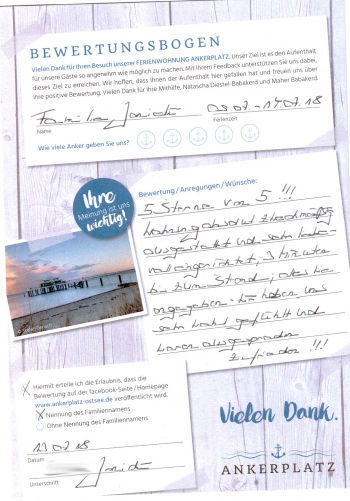 BEWERTUNGSBOGEN
Vielen Dank für Ihren Besuch unserer FERIENWOHNUNG ANKERPLATZ. Unser Ziel ist es den Aufenthalt
für unsere Gäste so angenehm wie möglich zu machen. Mit Ihrem Feedback unterstützen Sie uns dabei,
dieses Ziel zu erreichen. Wir hoffen, dass Ihnen der Aufenthalt hier gefallen hat und freuen uns über
Ihre positive Bewertung. Vielen Dank für Ihre Mithilfe, Natascha Diestel-Babakerd und Maher Babakerd.
Familie
Name
Ferienzen
Wie viele Anker geben Sie uns?
Ihre
Meinung ist uns
wichtig!
Bewertung / Anregungen / Wünsche:
5 Sterne von 5 !!!
Wohnung absolut zweckmäßig
ausgestattet und sehr
eingerichtet, 3 Minuten
bis zum Strand, alles wie
angegeben - wir haben uns
sehr wohl gefühlt und
waren ausgesprochen
zufrieden !!!
X Hiermit erteile ich die Erlaubnis, dass die
Bewertung auf der facebook-Seite / Homepage
www.ankerplatz-ostsee.de veröffentlicht wird.
X Nennung des Familiennamens
Ohne Nennung des Familiennamens
Datum
Unterschrift
Vielen Dank.
ANKERPLATZ